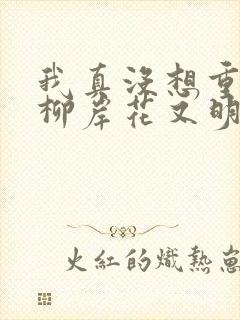 我真没想重
柳岸花又明
火红的炽热